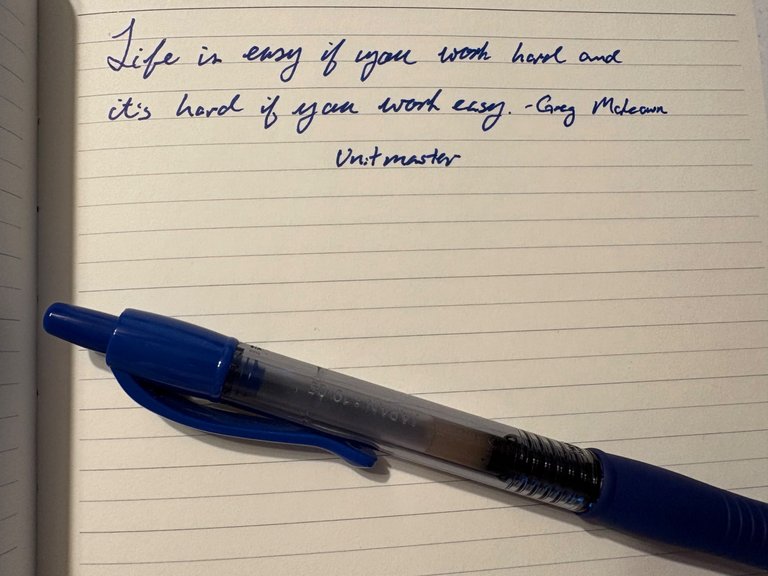 Life is easy if you work hard and
it's hard if you work easy. -Greg McKeown
Unitmaster
JAPAN